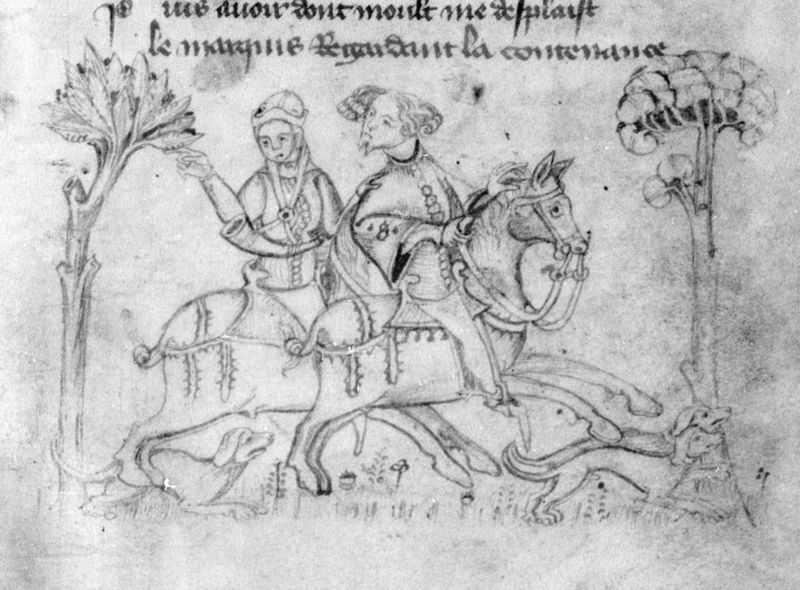 uis auoir dont moult me desplaist
le marquis Regardant la contenance